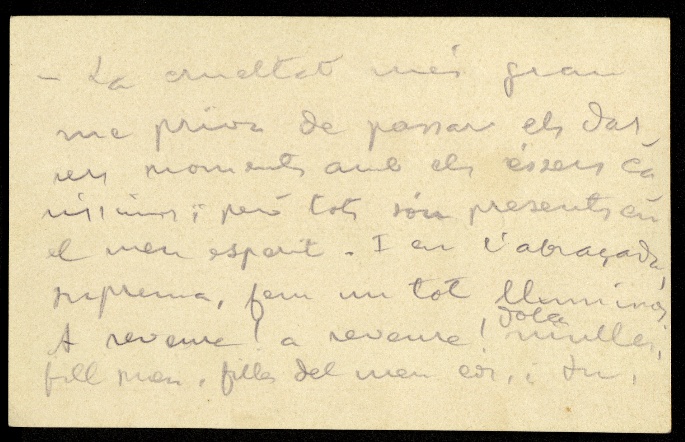 - La crueltat més gran
me priva de passar els dar
rers moments amb els éssers ca
ríssims; però tots són presents en
el meu esperit. I en l'abraçada,
suprema, fem un tot lluminós
A reveure! a reveure! dolça muller,
fill meu, filles del meu cor, i tu,